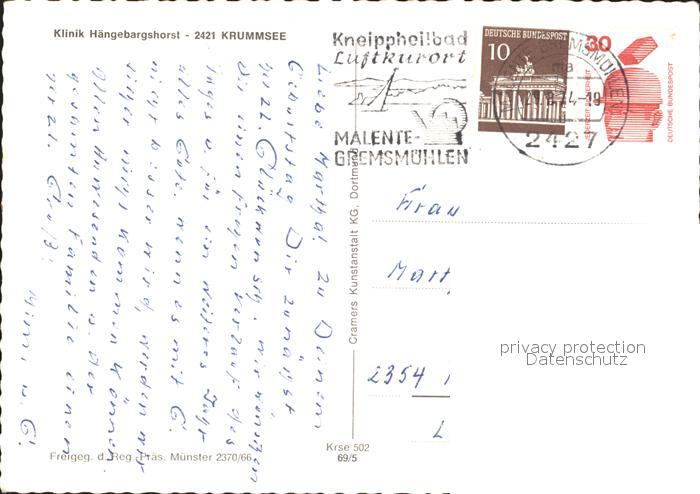 Klinik Hängebargshorst - 2421 KRUMMSEE
Kneippheilbad
Luftkurort
MALENTE-
GREMSMÜHLEN
DEUTSCHE BUNDESPOST
10
30
DEUTSCHE BUNDESPOST
2427
Liebe Martha! Zu Deinem
Geburtstag Dir zunächst
herzl. Glückwunsch. Wir wünschen
Dir einen frohen Verlauf des
Tages u. für ein weiteres Jahr
alles Gute. Wenn es mit G.
besser wird, werden wir
kommen können.
Allen Anwesenden u. der
gesamten Familie einen
herzl. Gruß!
Mimi u. G.
Cramers Kunstanstalt KG, Dortmund
Frau
Mart
2354
L
privacy protection
Datenschutz
Krse 502
69/5
Freigeg. d. Reg.-Präs. Münster 2370/66